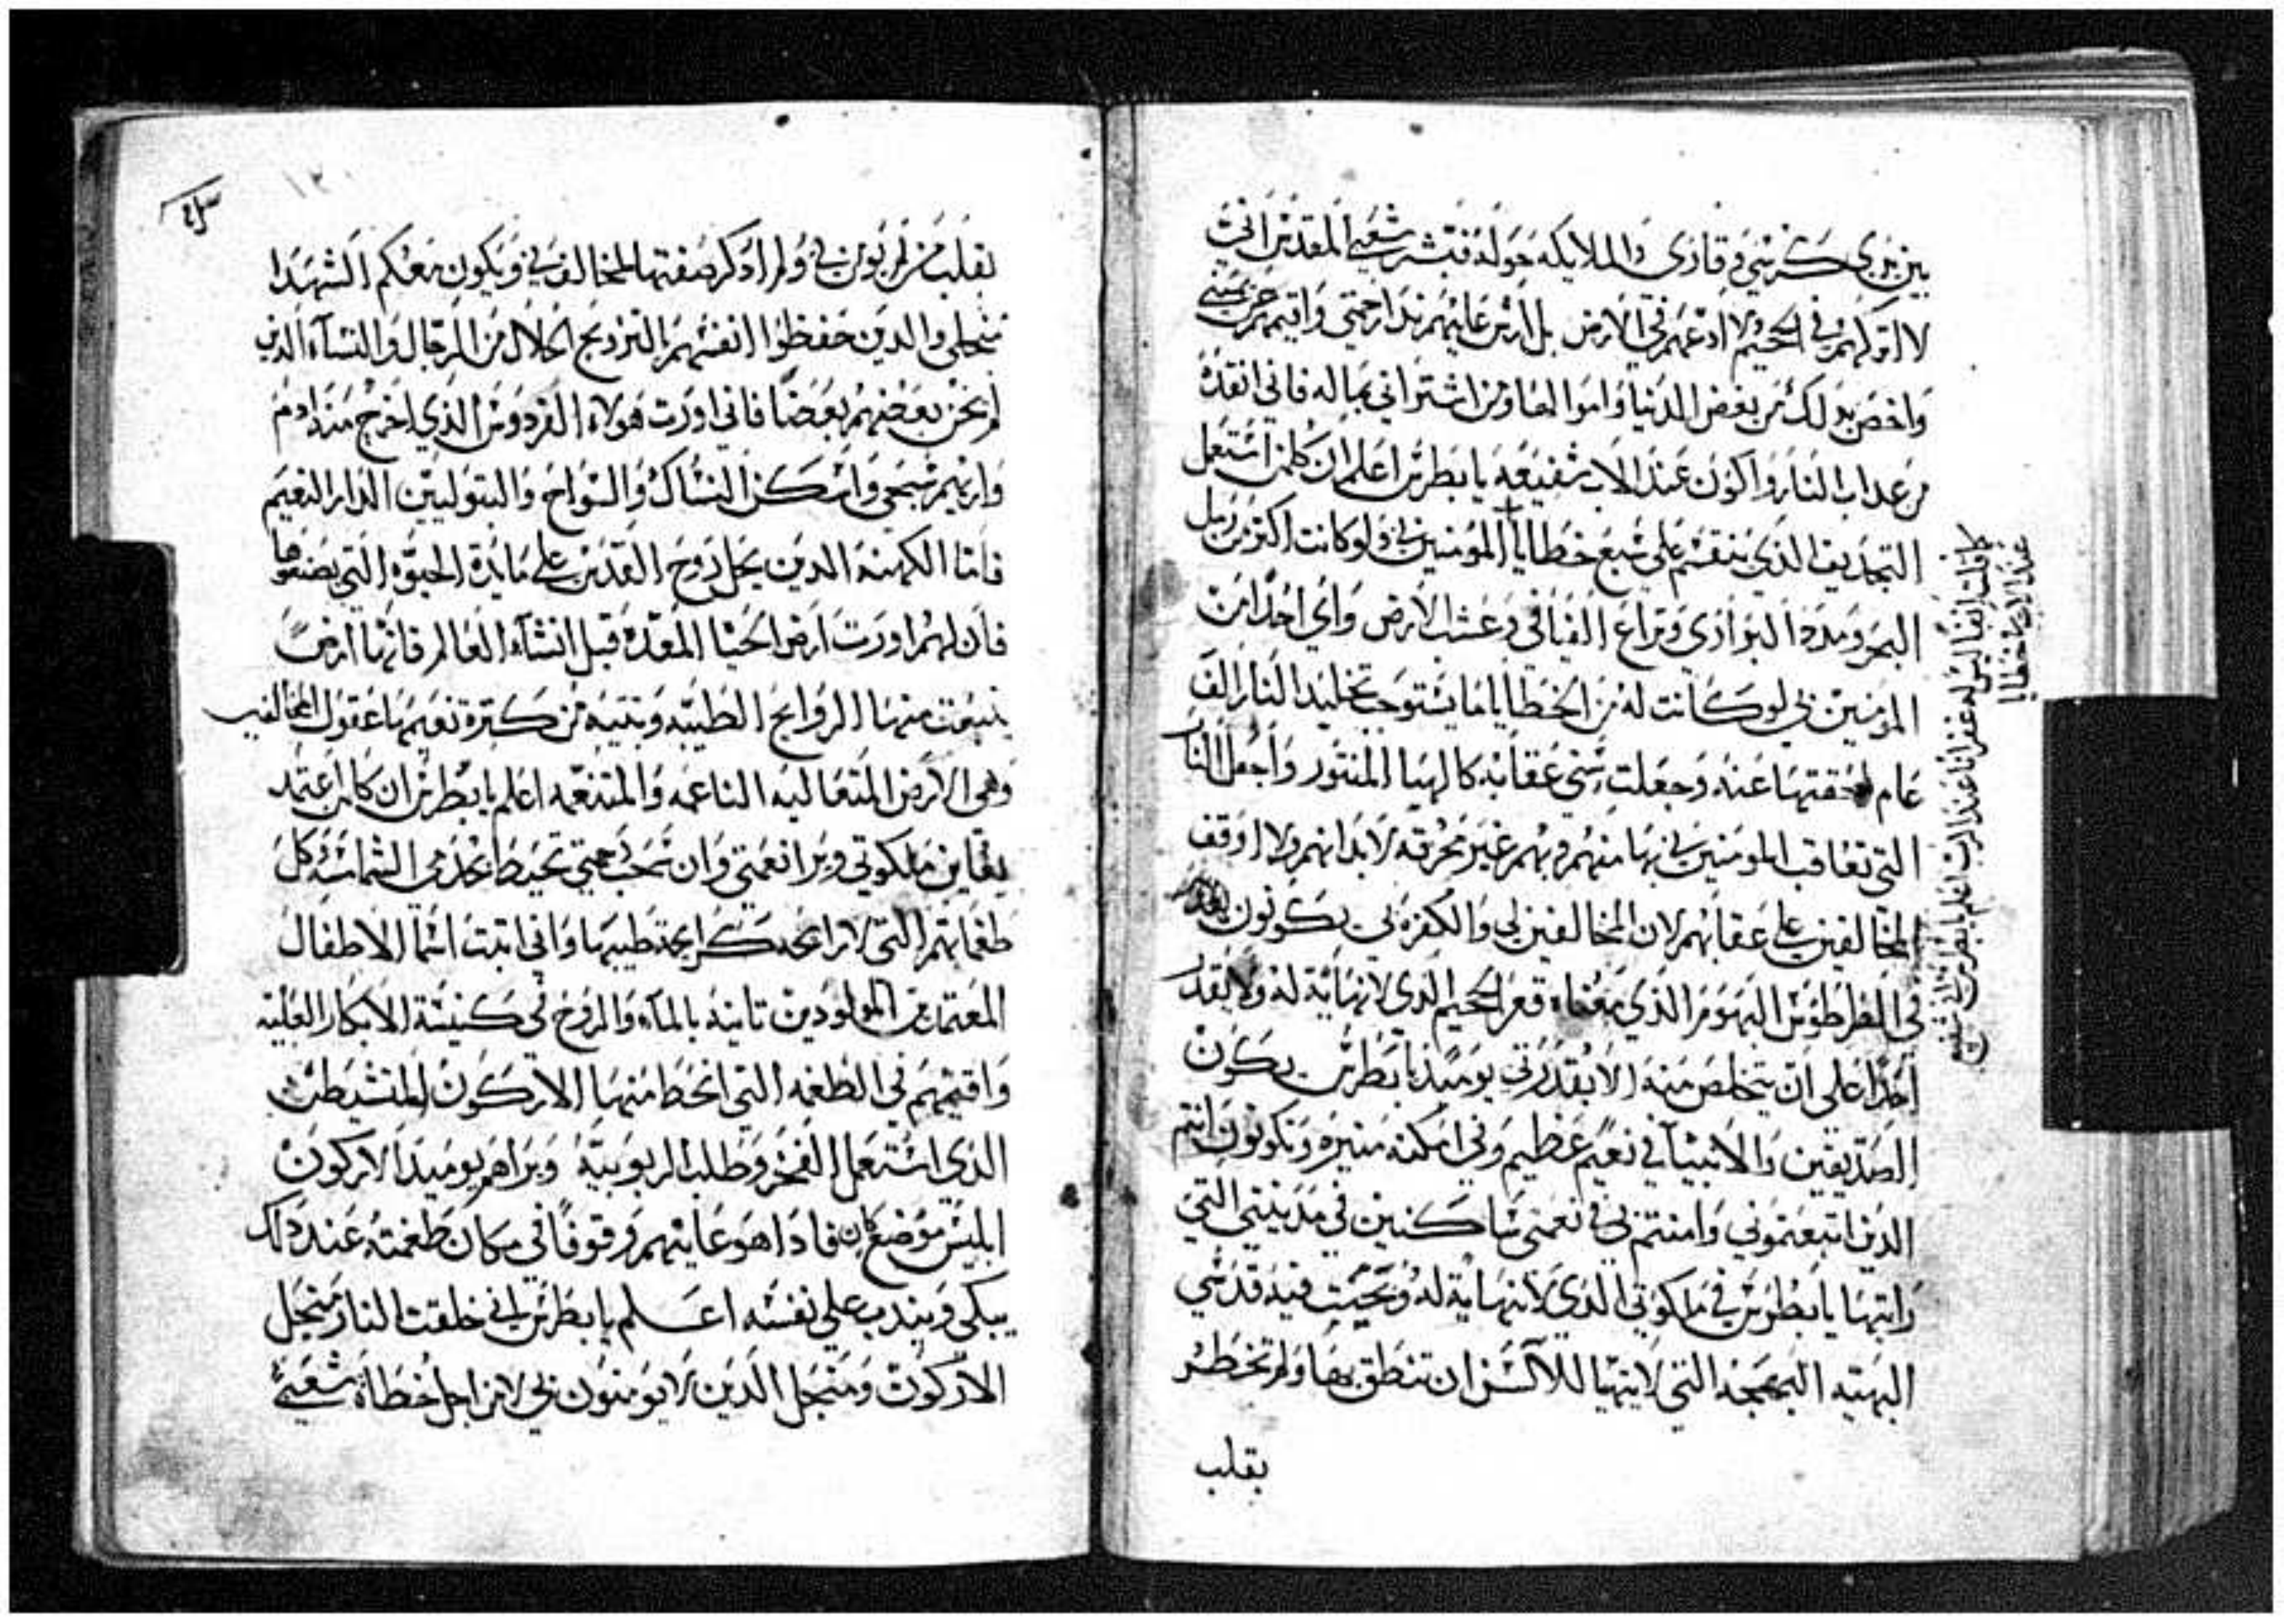 بين يدي كرسي وقاري والملايكه حوله فبشر شعبي المقدس اني
لا اتركهم في الجحيم ولا ادعهم في الارض بل ارش عليهم ندا رحمتي واقيمهم عن يميني
واخص بدلك من بغض الدنيا واموالها ومن اشتراني بماله فاني انقده
من عداب النار واكون عند الاب شفيعه يا بطرس اعلم ان كلمن استعمل
التجديف الذي ينقسم على سبع خطايا المومنين بي ولو كانت اكتر من رمل
البحر ومدد البوادي وتراع الفيافي وعشب الارض واي احدا من
المومنين بي لو كانت له من الخطايا ما يستوجب تخليد النار الف
عام لمحقتها عنه وجعلت سني عقابه كالهبا المنتور واجعل النار
التي تعاقب المومنين بي بها منهم وبهم غير محرقه لابدانهم ولا اوقف
المخالفين على عقابهم لان المخالفين لي والكفره بي يكونون
في الطرطوس البهومر الذي معناه قعر الجحيم الدي لا نهاية له ولا يقدر
احدا على ان يتخلص منه الا بقدرتي يوميد يا بطرس يكون
الصديقين والانبيآ في نعيم عظيم وفي امكنه منيره وتكونون انتم
الدين اتبعتموني وامنتم بي في نعمتي ساكنين في مدينتي التي
رايتها يا بطرس في ملكوتي الدي لا نهاية له وتحيت فيه قدسي
البهيه البهجه التي لا يتهيا للالسن ان تنطق بها ولم تخطر
بقلب
كما قلت انفا ليس له غفرانا عند الرب اعلم يا بطرس اني شفيع
عند الاب خطايا
بقلب من لم يومن بي ولم ادكر صفتها للمخالفين بي ويكون معكم الشهدا
من اجلي والدين حفظوا انفسهم بالتزويج الحلال من الرجال والنسآء الدين
لم يخن بعضهم بعضا فاني اورت هولاء الفردوس الذي اخرج منه ادم
واريهم مجمي واسكن النساك والسواح والبتوليين الدار النعيم
فاما الكهنه الدين يحل روح القدس على مايدة الحيوه التي يصنعوها
فان لهم اورت ارض الحيا المعده قبل انشاء العالم فانها ارضا
ينبعت منها الروايح الطيبه وبتيه من كترة نعيمها عقول المخالفين
وهي الارض المتعاليه الناعمه والمتنعمه اعلم يا بطرس ان كلمن اعتمد
يعاين ملكوتي ويرا نعمتي وان سحب رحمتي تحيط بخدمي الشمامسه كل
طغماتهم التي لا رايحه كرايحة طيبها واني اتبت اسما الاطفال
المعتمدين المولودين تانيه بالمآء والروح في كنيسة الابكار العليه
واقيمهم في الطغمه التي انحط منها الاركون المتشيطن
الذي استعمل الفخر وطلب الربوبيه ويراهم يوميد الاركون
ابليس موضع كان فاذا هو عاينهم وقوفا في مكان طغمته عند دلك
يبكي ويندب على نفسه اعلم يا بطرس اني خلقت النار من اجل
الاركون ومن اجل الذين لا يومنون بي لا من اجل خطاة شعبي